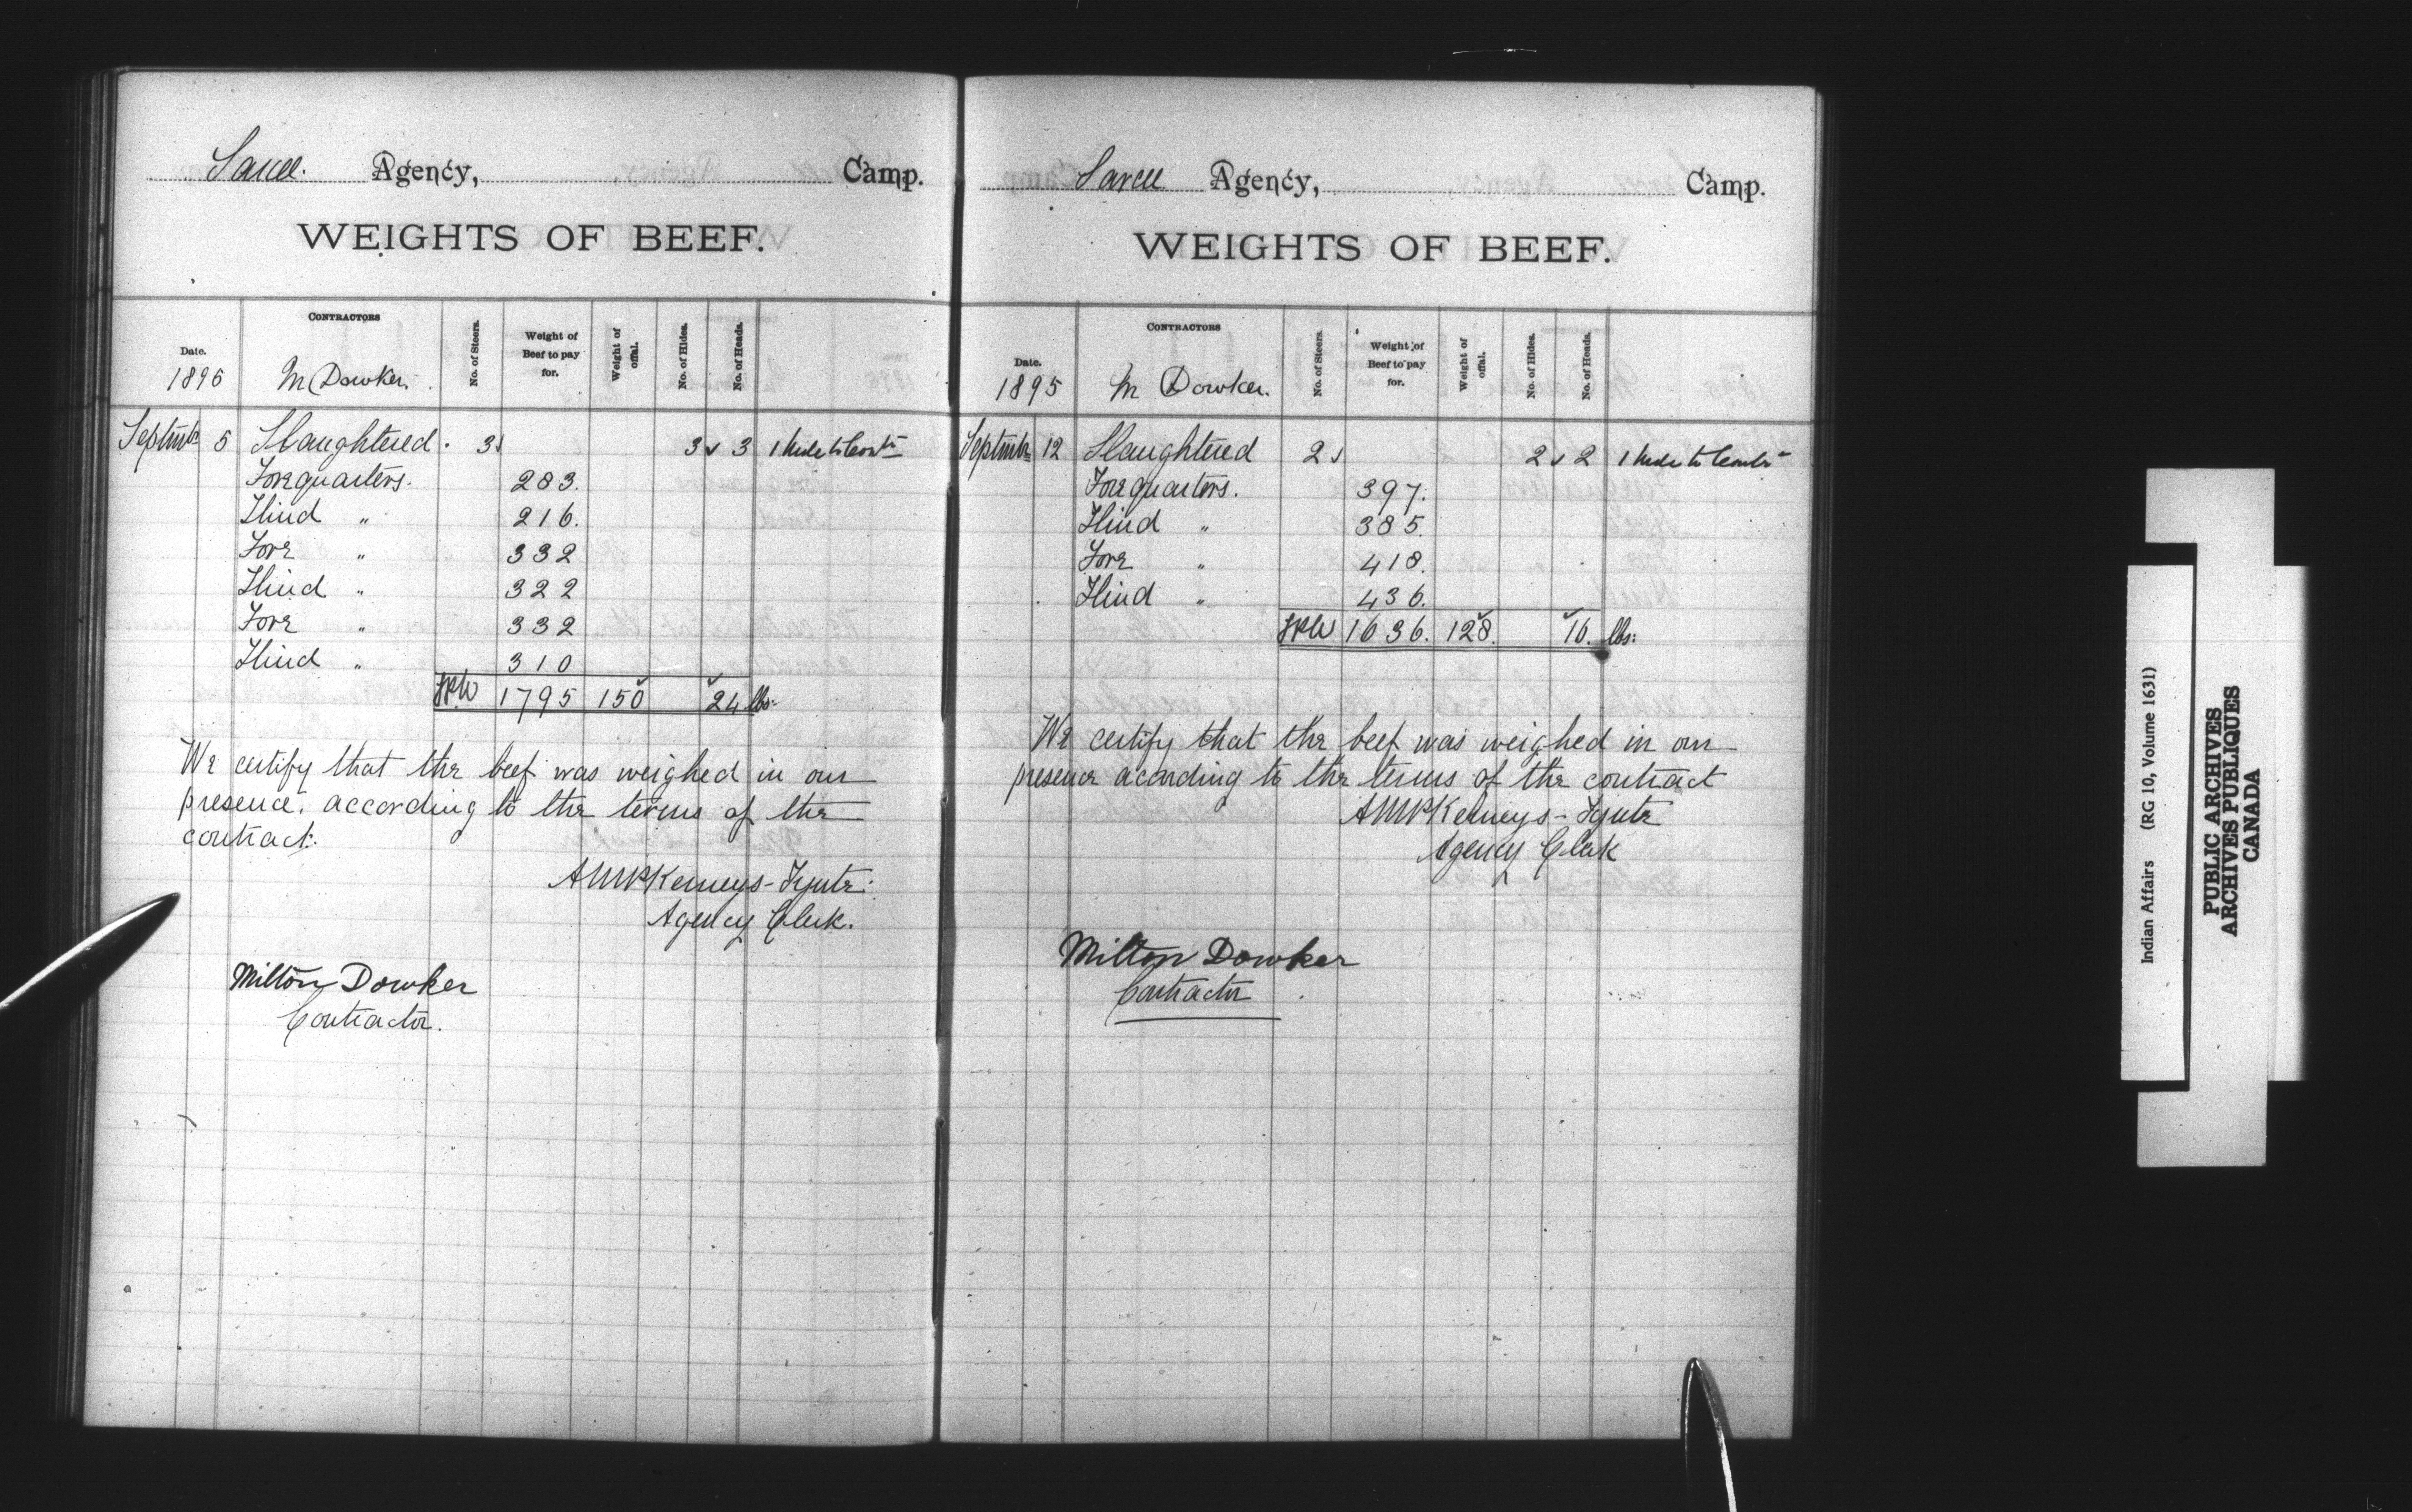 Sarcee. Agency, Camp.
WEIGHTS OF BEEF.
Date. CONTRACTORS No. of Steers. Weight of Beef to pay for. Weight of offal. No. of Hides. No. of Heads.
1895 M Dowker.
Septmbr 5 Slaughtered. 3 3 3 1 hide to Contr
Forequarters. 283.
Hind " 216.
Fore " 332
Hind " 322
Fore " 332
Hind " 310
1795 150 24 lbs.
We certify that the beef was weighed in our
presence. according to the terms of the
contract.
AMcKemeys-Tynte.
Agency Clerk.
Milton Dowker
Contractor.
Sarcee Agency, Camp.
WEIGHTS OF BEEF.
Date. CONTRACTORS No. of Steers. Weight of Beef to pay for. Weight of offal. No. of Hides. No. of Heads.
1895 M Dowker.
Septmbr 12 Slaughtered 2 2 2 1 hide to Contr
Forequarters. 397.
Hind " 385.
Fore " 418.
Hind " 436.
1636. 128. 16. lbs.
We certify that the beef was weighed in our
presence according to the terms of the contract
AMcKemeys-Tynte
Agency Clerk
Milton Dowker
Contractor
Indian Affairs (RG 10, Volume 1631)
PUBLIC ARCHIVES
ARCHIVES PUBLIQUES
CANADA